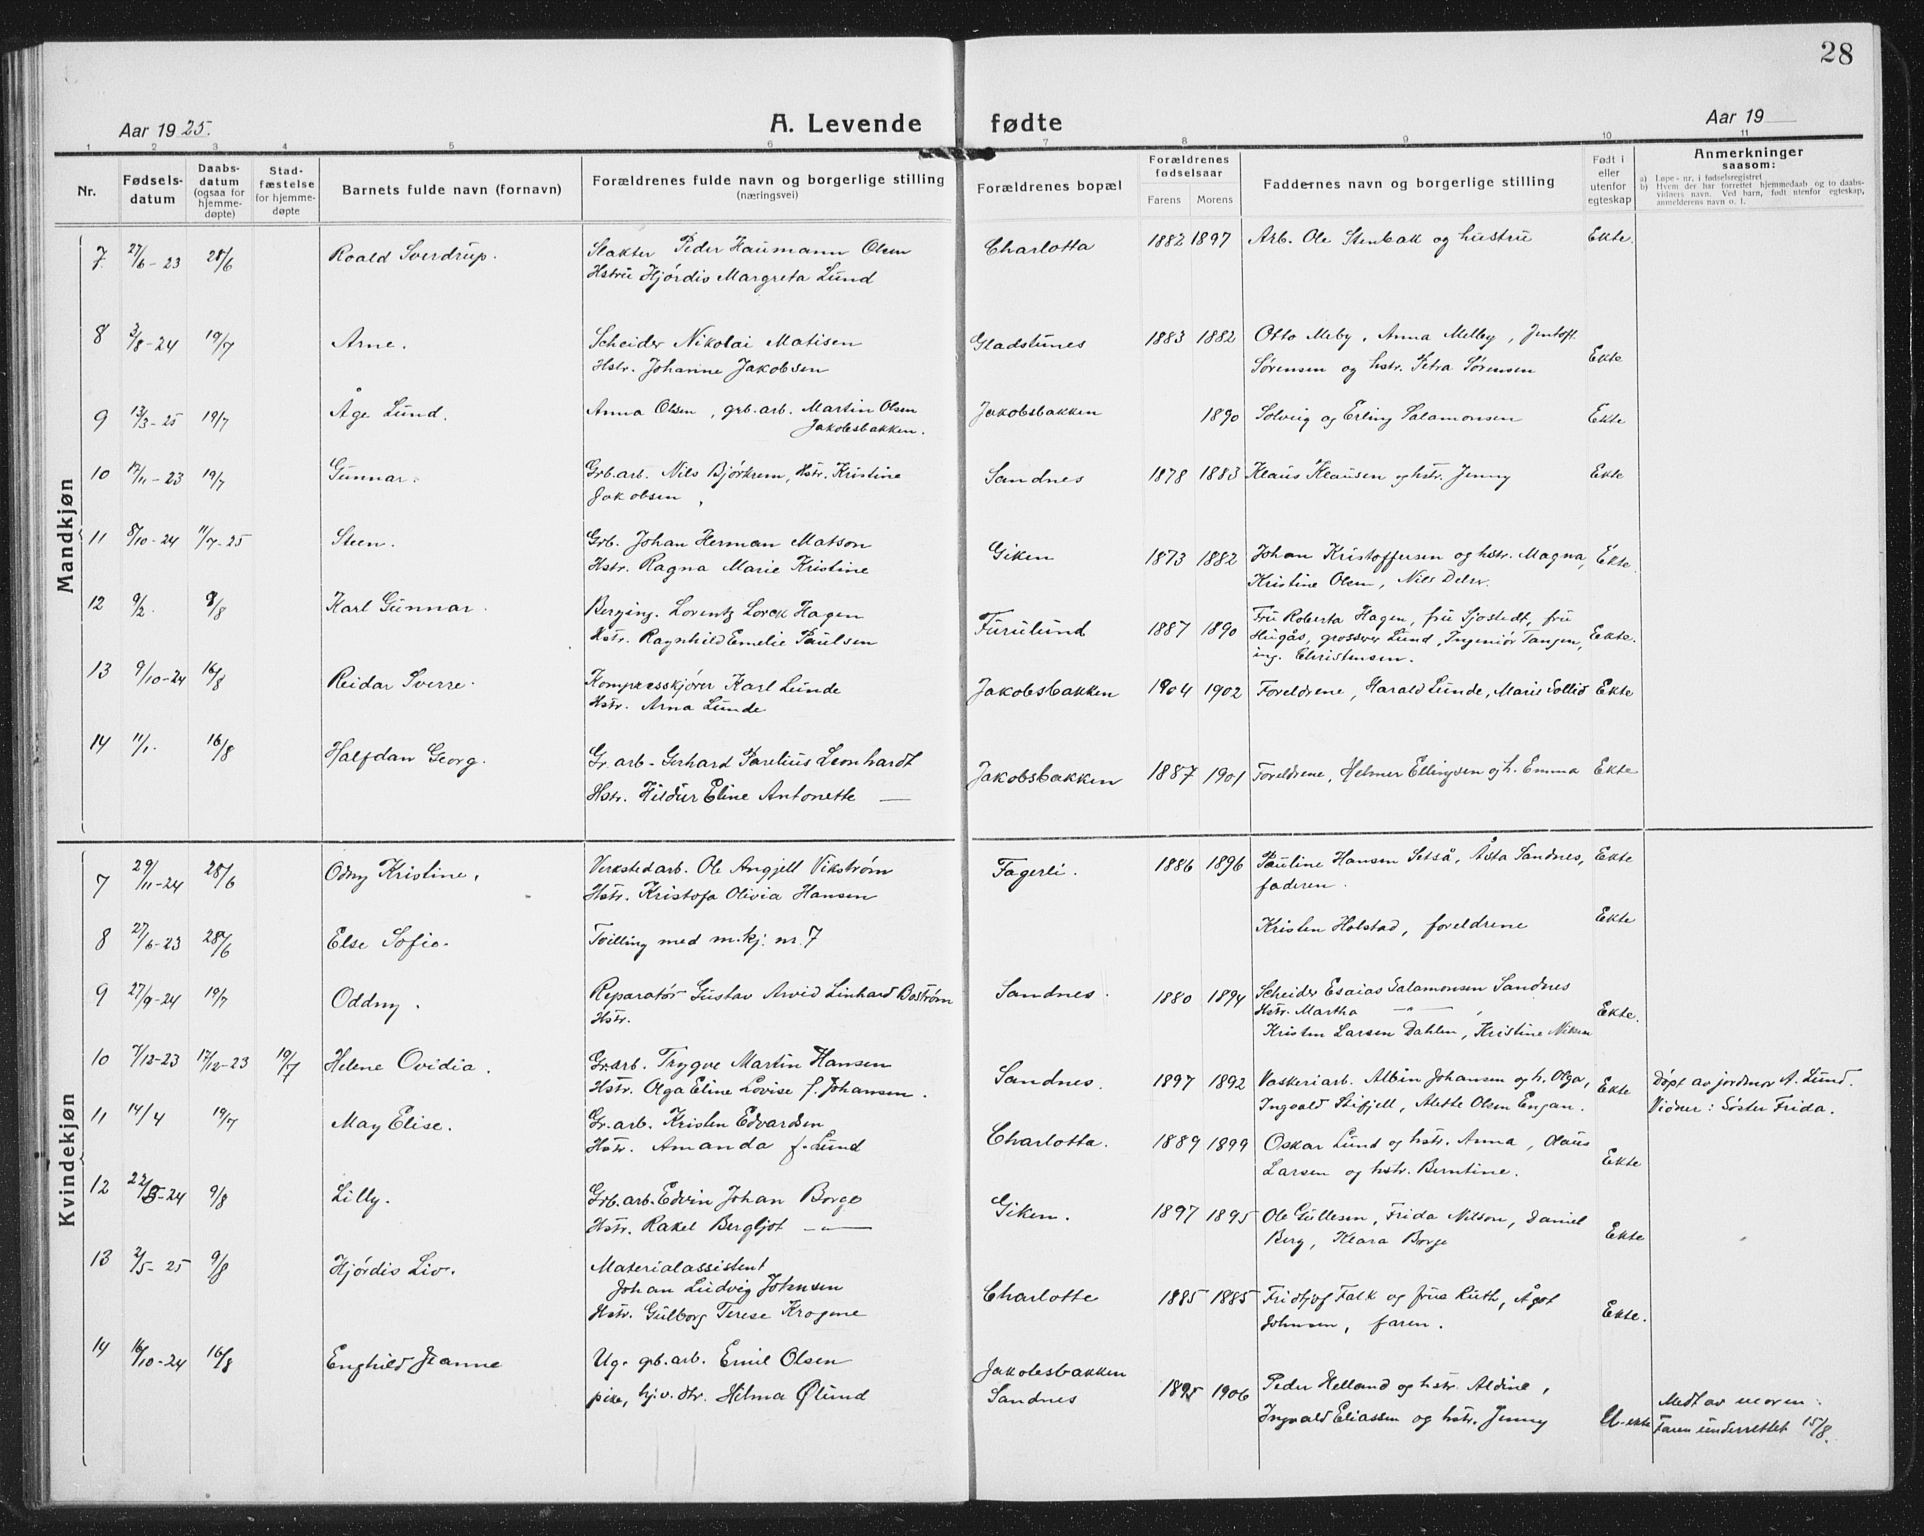 28
Aar 1925.
A. Levende fødte
Aar 19
1 2 3 4 5 6 7 8 9 10 11
Nr.
Fødsels-
datum
Daabs-
datum
(ogsaa for
hjemme-
døpte)
Stad-
fæstelse
for hjemme-
døpte
Barnets fulde navn (fornavn)
Forældrenes fulde navn og borgerlige stilling
(næringsvei)
Forældrenes bopæl
Forældrenes
fødselsaar
Farens Morens
Faddernes navn og borgerlige stilling
Født i
eller
utenfor
egteskap
Anmerkninger
saasom:
a) Løpe-nr. i fødselsregistret
b) Hvem der har forrettet hjemmedaab og to daabs-
vidners navn. Ved barn, født utenfor egteskap,
anmelderens navn o. l.
Mandkjøn
7 27/6-23 28/6 Roald Sverdrup. Stakter Peder Haumann Olsen Charlotta 1882 1897 Arb. Ole Stenbak og hustru Ekte.
Hstru Hjørdis Margreta Lund
8 3/8-24 19/7 Arne. Scheider Nikolai Matisen Gladstunes 1883 1882 Otto Meby, Anna Melby, Jentoft
Hstr. Johanne Jakobsen Sørensen og hstr. Petra Sørensen Ekte
9 13/3-25 19/7 Åge Lund. Anna Olsen, grb. arb. Martin Olsen Jakobsbakken 1890 Solveig og Erling Salamonsen Ekte
Jakobsbakken.
10 17/11-23 19/7 Gunnar. Grb. arb. Nils Bjørkrem, Hstr. Kristine Sandnes 1878 1883 Klaus Klausen og hstr. Jenny Ekte
Jakobsen
11 8/10-24 11/7-25 Steen. Grb. Johan Herman Matson Giken 1873 1882 Johan Kristoffersen og hstr. Magna, Ekte.
Hstr. Ragna Marie Kristine Kristine Olsen, Nils
12 9/2. 9/8 Karl Gunnar. Berging. Lorentz Lorck Hagen Furulund 1887 1890 Fru Roberta Hagen, fru Sjøstedt, fru
Hstr. Ragnhild Emelie Paulsen Hugås, grosserer Lund, Ingeniør Tangen, Ekte.
ing. Christensen.
13 9/10-24 16/8 Reidar Sverre. Kompresskjører Karl Lunde Jakobsbakken 1904 1902 Foreldrene, Harald Lunde, Marie Sollid Ekte
Hstr. Arna Lunde
14 11/1. 16/8 Halfdan Georg. Gr. arb. Gerhard Parelius Leonhardt Jakobsbakken 1887 1901 Foreldrene, Helmer Ellingsen og h. Emma Ekte
Hstr. Hildur Eline Antonette —
Kvindekjøn
7 29/11-24 28/6 Odny Kristine. Verkstedarb. Ole Angjell Vikstrøm Fagerli. 1886 1896 Pauline Hansen Setså, Åsta Sandnes, Ekte
Hstr. Kristofa Olivia Hansen faderen.
8 27/6-23 28/6 Else Sofie. Tvilling med m.kj. nr. 7 Kristen Holstad, foreldrene Ekte
9 27/9-24 19/7 Oddny. Reparatør Gustav Arvid Linhard Bostrøm Sandnes. 1880 1894 Scheider Esaias Salamonsen Sandnes
Hstr. Hstr. Martha — " — Ekte.
Kristen Larsen Dahlen, Kristine
10 7/12-23 17/12-23 19/7 Helene Ovidia. Gr.arb. Trygve Martin Hansen Sandnes. 1897 1892 Vaskeriarb. Albin Johansen og h. Olga, Ekte Døpt av jordmor A. Lund.
Hstr. Olga Eline Lovise f. Johansen. Ingvald Stifjell, Alette Olsen Engan. Vidner: Søster Frida.
11 14/4 19/7 May Elise. Gr. arb. Kristen Edvardsen Charlotta. 1889 1899 Oskar Lund og hstr. Anna, Olaus
Hstr. Amanda f. Lund Larsen og hstr. Berntine. Ekte
12 22/5-24 9/8 Lilly. Grb. arb. Edvin Johan Borge Giken. 1897 1895 Ole Gullesen, Frida Nilson, Daniel
Hstr. Rakel Bergljot — " — Berg, Klara Borge Ekte
13 2/5-25 9/8 Hjørdis Liv. Materialassistent
Johan Ludvig Johnsen Charlotte 1885 1885 Fridtjof Falk og frue Ruth, Ågot
Hstr. Gulborg Terese Krogne Johnsen, faren. Ekte.
14 16/10-24 16/8 Enghild Jeanne Ug. grb. arb. Emil Olsen Jakobsbakken
pike, hj.v. dtr. Helma Ølund Sandnes 1895 1906 Peder Helland og hstr. Aldine, Meldt av moren.
Ingvald Eliassen og hstr. Jenny U-ekte Faren underrettet 15/8.